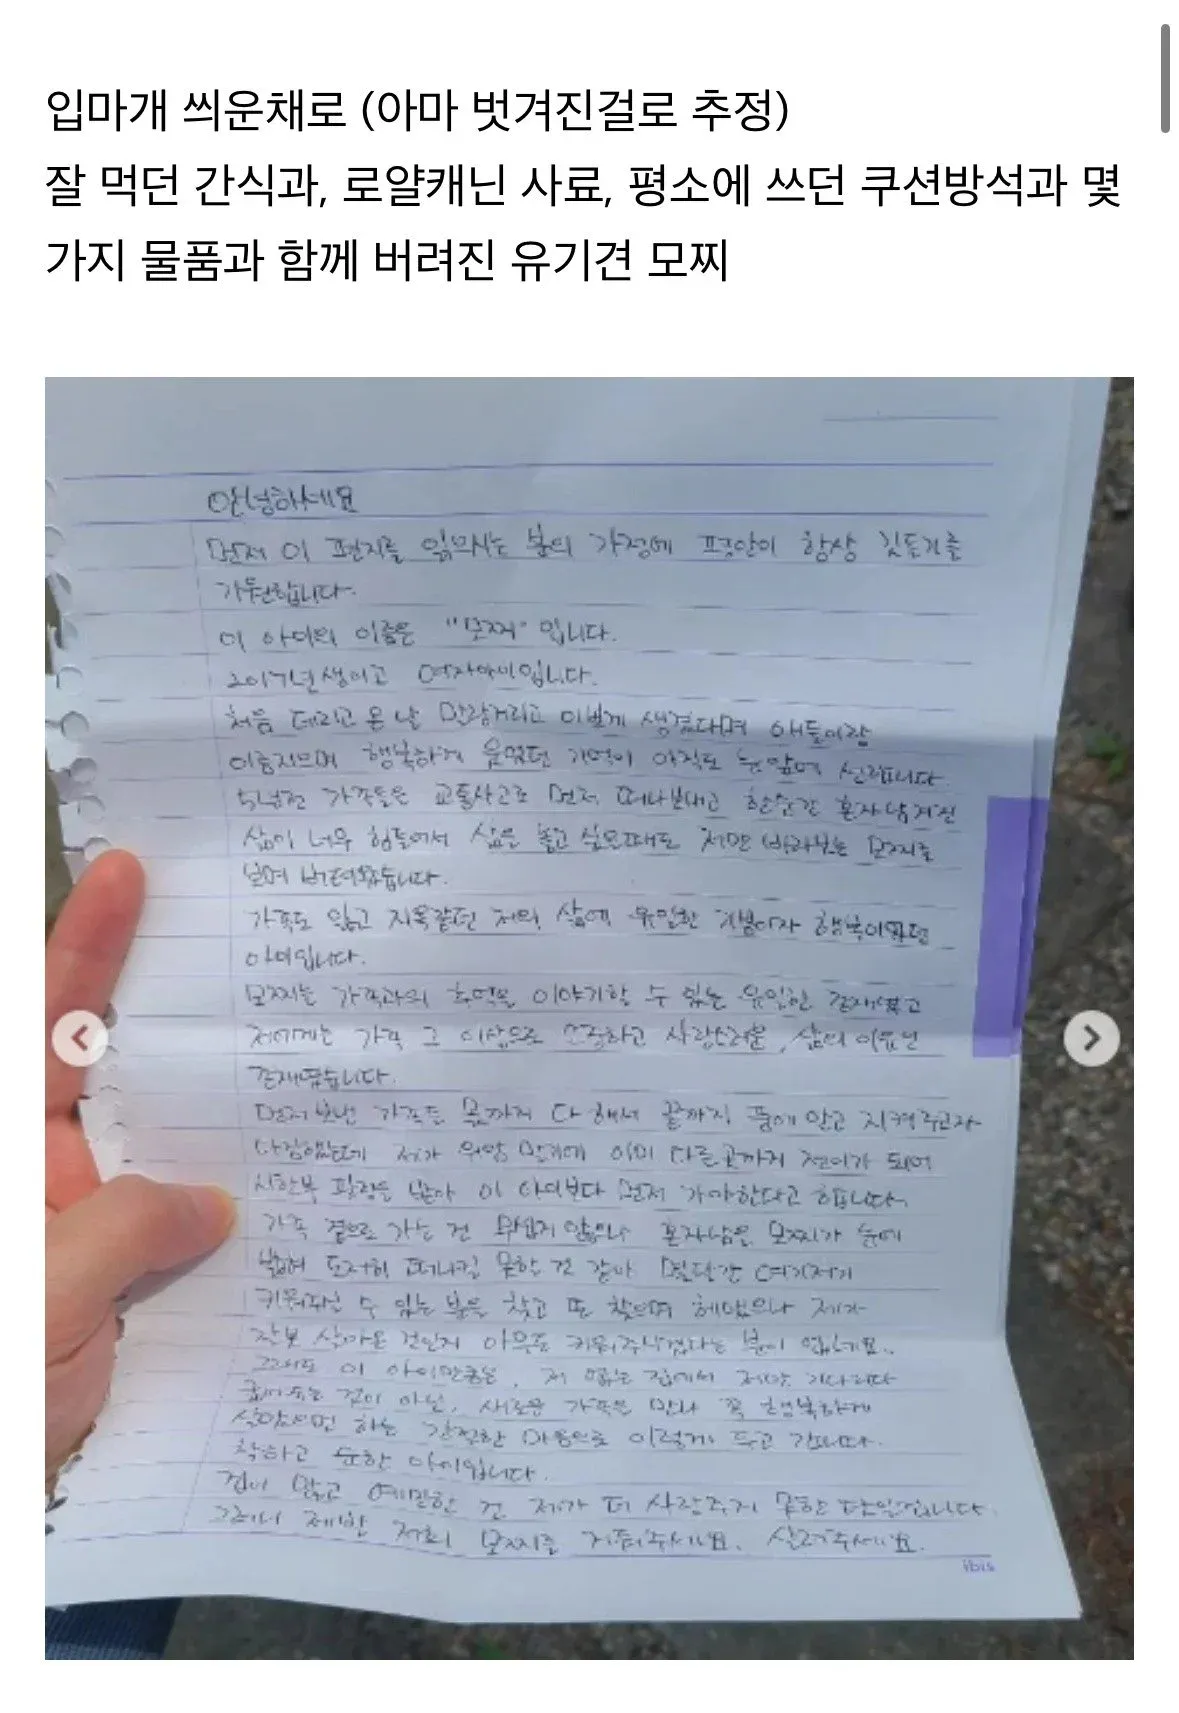 입마개 씌운채로 (아마 벗겨진걸로 추정)
잘 먹던 간식과, 로얄캐닌 사료, 평소에 쓰던 쿠션방석과 몇
가지 물품과 함께 버려진 유기견 모찌
안녕하세요
먼저 이 편지를 읽으시는 분의 가정에 평안이 항상 깃들기를
간원합니다.
이 아이의 이름은 "모찌" 입니다.
2017년생이고 여자아이입니다.
처음 데리고 온 날 말랑거리고 이쁘게 생겼다며 애들이랑
이름지으며 행복하게 웃었던 기억이 아직도 눈앞에 선합니다.
5년전 가족들은 교통사고로 먼저 떠나보내고 한순간 혼자남겨진
삶이 너무 힘들어서 삶을 놓고 싶을때도 저만 바라보는 모찌를
보며 버텨왔습니다.
가족도 잃고 지옥같던 저의 삶에 유일한 희망이자 행복이었던
아이입니다.
모찌는 가족과의 추억을 이야기할 수 있는 유일한 존재였고
저에게는 가족 그 이상으로 소중하고 사랑스러운, 삶의 이유인
존재였습니다.
먼저보낸 가족들 몫까지 다 해서 끝까지 품에 안고 지켜주고자
다짐했는데 제가 위암 말기에 이미 다른곳까지 전이가 되어
시한부 판정을 받아 이 아이보다 먼저 가야한다고 합니다.
가족 곁으로 가는 건 무섭지 않으나 혼자남을 모찌가 눈에
밟혀 도저히 떠나질 못할 것 같아 몇달간 여기저기
키워주실 수 있는 분을 찾고 또 찾으며 헤맸으나 제가
잘못 살아온 것인지 아무도 키워주시겠다는 분이 없네요..
그래도 이 아이만큼은, 저 없는 집에서 저만 기다리다
굶어죽는 것이 아닌, 새로운 가족을 만나 꼭 행복하게
살았으면 하는 간절한 마음으로 이렇게 두고 갑니다.
착하고 순한 아이입니다.
겁이 많고 예민한 건 제가 더 사랑주지 못한 탓일겁니다.
그러니 제발 저희 모찌를 거둬주세요. 살려주세요.
ibis